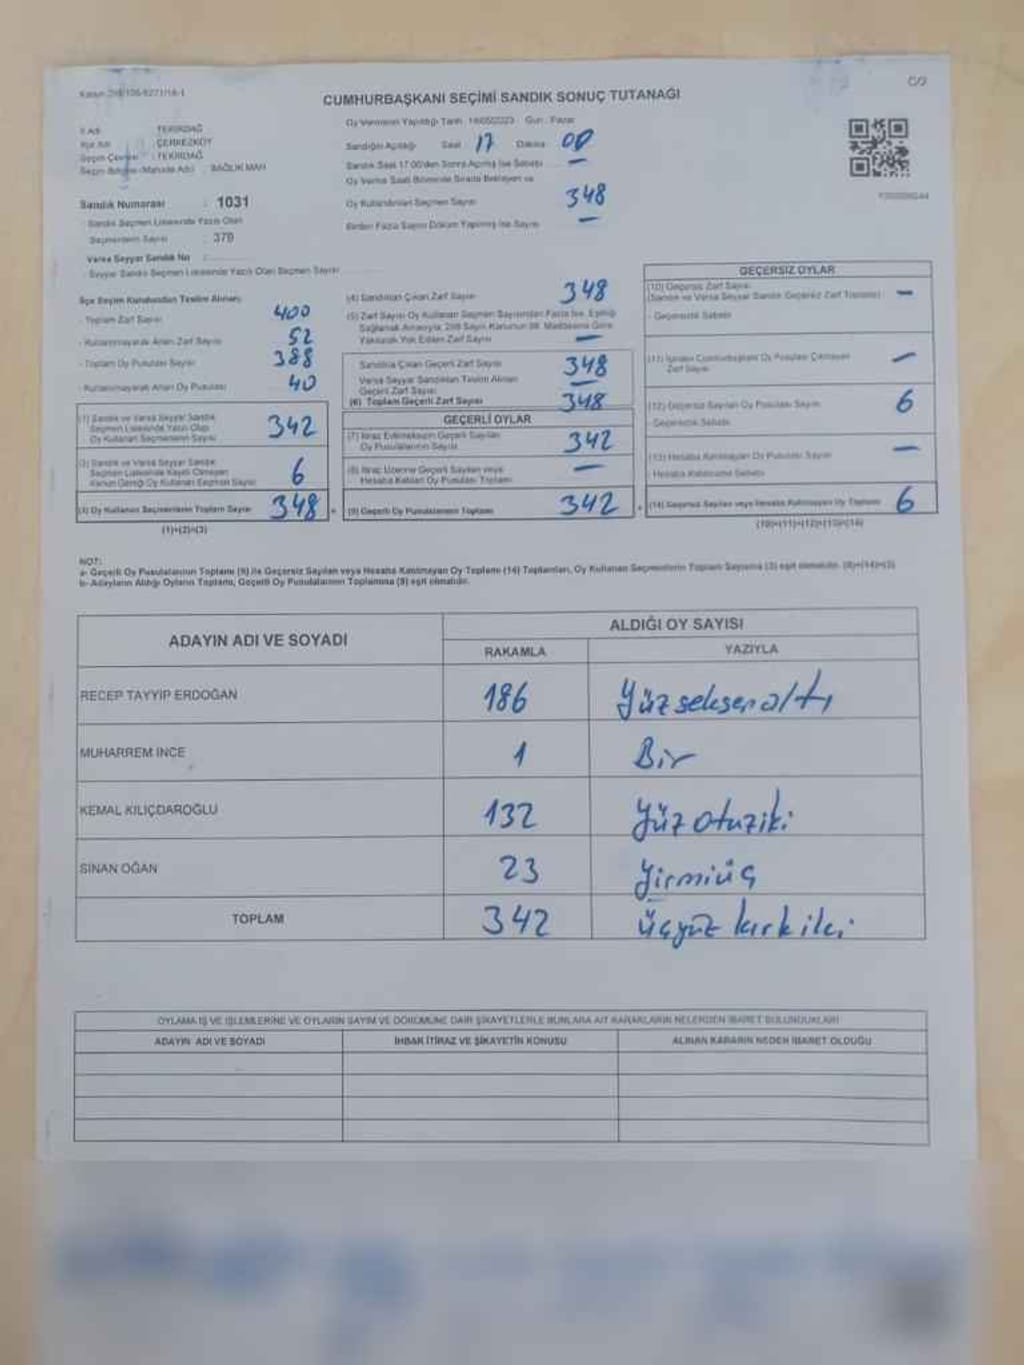 C/2
CUMHURBAŞKANI SEÇİMİ SANDIK SONUÇ TUTANAĞI
İl Adı : TEKİRDAĞ
İlçe Adı : ÇERKEZKÖY
Seçim Çevresi : TEKİRDAĞ
Seçim Bölgesi (Mahalle Adı) : BAĞLIK MAH
Sandık Numarası : 1031
Sandık Seçmen Listesinde Yazılı Olan
Seçmenlerin Sayısı : 379
Varsa Seyyar Sandık No :
Seyyar Sandık Seçmen Listesinde Yazılı Olan Seçmen Sayısı
Oy Vermenin Yapıldığı Tarih : 14/05/2023 Gün : Pazar
Sandığın Açıldığı Saat 17 Dakika 00
Sandık Saat 17.00'den Sonra Açılmış İse Sebebi —
Oy Verme Saati Bitiminde Sırada Bekleyen ve
Oy Kullandırılan Seçmen Sayısı 348
Birden Fazla Sayım Döküm Yapılmış İse Sayısı —
İlçe Seçim Kurulundan Teslim Alınan;
- Toplam Zarf Sayısı 400
- Kullanılmayarak Artan Zarf Sayısı 52
- Toplam Oy Pusulası Sayısı 388
- Kullanılmayarak Artan Oy Pusulası 40
(1) Sandık ve Varsa Seyyar Sandık
Seçmen Listesinde Yazılı Olup
Oy Kullanan Seçmenlerin Sayısı 342
(2) Sandık ve Varsa Seyyar Sandık
Seçmen Listesinde Kayıtlı Olmayan
Kanun Gereği Oy Kullanan Seçmen Sayısı 6
(3) Oy Kullanan Seçmenlerin Toplam Sayısı 348
(1)+(2)=(3)
(4) Sandıktan Çıkan Zarf Sayısı 348
(5) Zarf Sayısı Oy Kullanan Seçmen Sayısından Fazla İse, Eşitliği
Sağlamak Amacıyla, 298 Sayılı Kanunun 98. Maddesine Göre
Yakılarak Yok Edilen Zarf Sayısı —
Sandıkta Çıkan Geçerli Zarf Sayısı 348
Varsa Seyyar Sandıktan Teslim Alınan
Geçerli Zarf Sayısı —
(6) Toplam Geçerli Zarf Sayısı 348
GEÇERLİ OYLAR
(7) İtiraz Edilmeksizin Geçerli Sayılan
Oy Pusulalarının Sayısı 342
(8) İtiraz Üzerine Geçerli Sayılan veya
Hesaba Katılan Oy Pusulası Toplamı —
(9) Geçerli Oy Pusulalarının Toplamı 342
GEÇERSİZ OYLAR
(10) Geçersiz Zarf Sayısı
(Sandık ve Varsa Seyyar Sandık Geçersiz Zarf Toplamı) —
- Geçersizlik Sebebi
(11) İçinden Cumhurbaşkanı Oy Pusulası Çıkmayan
Zarf Sayısı —
(12) Geçersiz Sayılan Oy Pusulası Sayısı 6
- Geçersizlik Sebebi
(13) Hesaba Katılmayan Oy Pusulası Sayısı —
- Hesaba Katılmama Sebebi
(14) Geçersiz Sayılan veya Hesaba Katılmayan Oy Toplamı 6
(10)+(11)+(12)+(13)=(14)
NOT:
a- Geçerli Oy Pusulalarının Toplamı (9) ile Geçersiz Sayılan veya Hesaba Katılmayan Oy Toplamı (14) Toplamları, Oy Kullanan Seçmenlerin Toplam Sayısına (3) eşit olmalıdır. (9)+(14)=(3)
b- Adayların Aldığı Oyların Toplamı, Geçerli Oy Pusulalarının Toplamına (9) eşit olmalıdır.
ADAYIN ADI VE SOYADI
ALDIĞI OY SAYISI
RAKAMLA YAZIYLA
RECEP TAYYİP ERDOĞAN 186 Yüzseksenaltı
MUHARREM İNCE 1 Bir
KEMAL KILIÇDAROĞLU 132 Yüzotuziki
SİNAN OĞAN 23 Yirmiüç
TOPLAM 342 üçyüz kırk iki
OYLAMA İŞ VE İŞLEMLERİNE VE OYLARIN SAYIM VE DÖKÜMÜNE DAİR ŞİKAYETLERLE BUNLARA AİT KARARLARIN NELERDEN İBARET BULUNDUKLARI
ADAYIN ADI VE SOYADI İHBAR İTİRAZ VE ŞİKAYETİN KONUSU ALINAN KARARIN NEDEN İBARET OLDUĞU